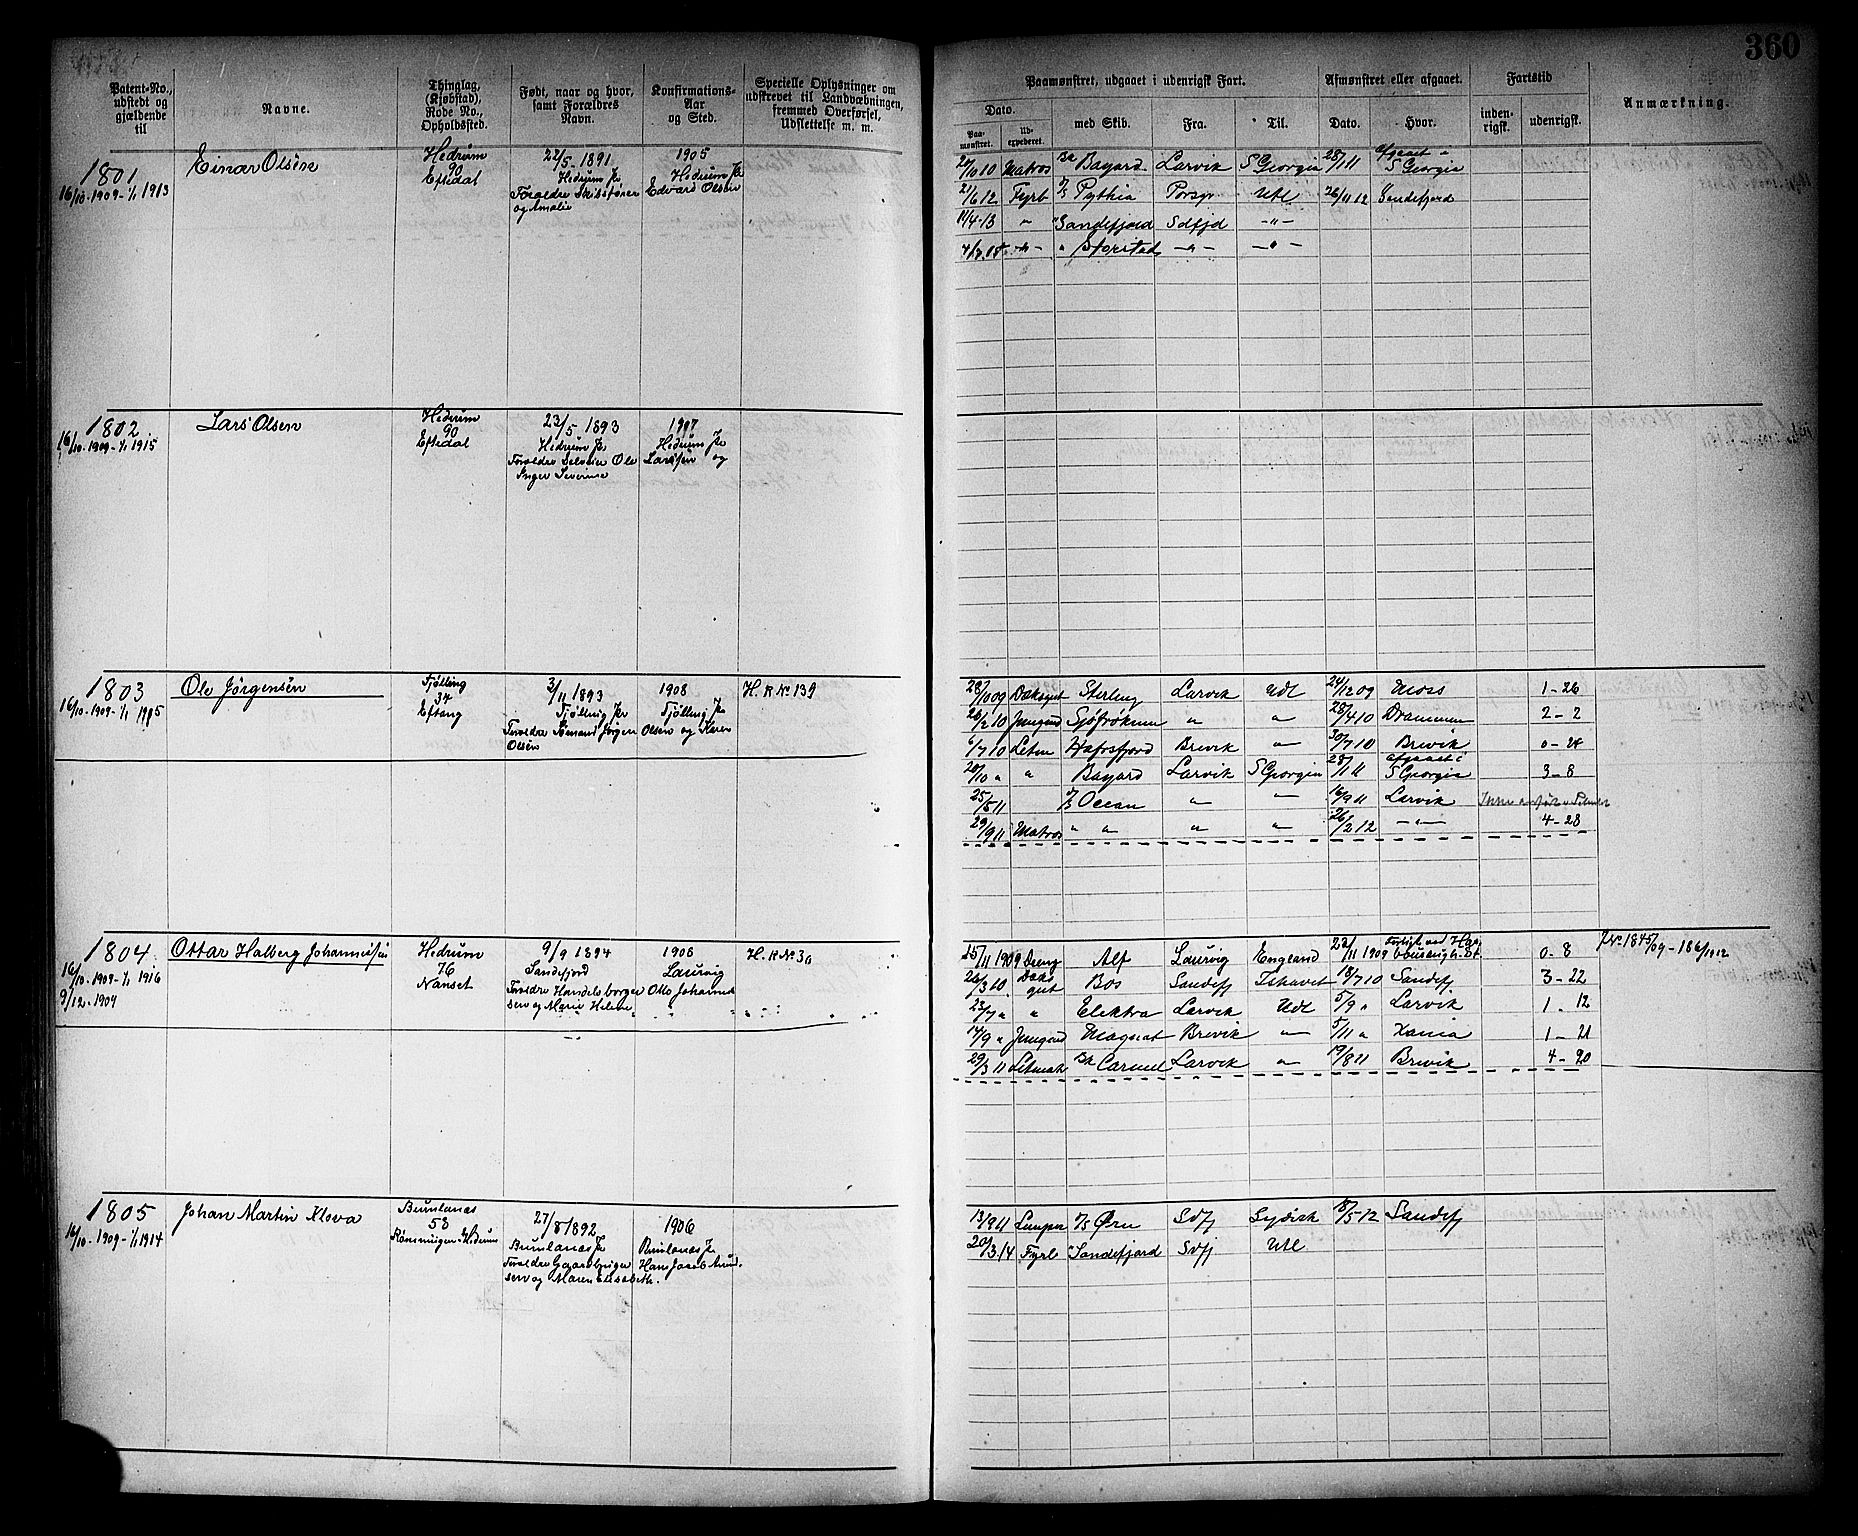 360
Patent-No., udstedt og gjældende til
Navne.
Thinglag, (Kjøbstad), Rode No., Opholdssted.
Født, naar og hvor, samt Forældres Navn.
Konfirmations-Aar og Sted.
Specielle Oplysninger om udskrevet til Landværnningen, fremmed Overførsel, Udslettelse m. m.
Paamønstret, udgaaet i udenrigsk Fart.
Afmønstret eller afgaaet.
Fartstid
Anmærkning.
Dato.
Paa-mønstret.
Ud-expederet.
med Skib.
Fra.
Til.
Dato.
Hvor.
inden-rigsk.
udenrigsk.
1801 Einar Olsen Hedrum 22/5 1891 1905
16/10-1909-1/1 1913 90 Hedrum Hedrum
Eftedal Forældre Skibstøner Edward Olsen
og Amalie
27/10 10 Matros Bk Bayard Larvik S Georgia 28/1 11 afgaaet i S Georgia
21/6 12 Fyrb Pythia Porsgr Utl 26/11 12 Sandefjord
11/4-13 " " Sandefjord Sdfjd -"-
-"- " Storstad -"- -"-
1802 Lars Olsen Hedrum 23/5 1893 1907
16/10-1909-1/1 1915 90 Hedrum Hedrum
Eftedal Forældre Selveier Ole Larssen og
Inger Severine
1803 Ole Jörgensen Tjølling 3/11 1893 1908 H. R No 139
16/10-1909-1/1 1915 34 Tjølling Tjølling
Eftang Forældre Sømand Jörgen Olsen og Karen
Olsen
28/10 09 Dæksgut Sterling Larvik Udl 24/12 09 Moss 1-26
20/2 10 Jungmd Sjöfröken " " 28/4 10 Drammen 2-2
6/7 10 Letm Hafrsfjord Brevik " 30/7 10 Brevik 0-24
20/10 " " Bayard Larvik S Georgia 28/1 11 afgaaet i S Georgia 3-8
25/5 11 Ocean " " 16/9 11 Larvik
29/9 11 Matros " " " " 26/2 12 -"- 4-28
1804 Ottar Halberg Johannessen Hedrum 9/9 1894 1908 H. R No 30
16/10-1909-1/1 1916 76 Sandefjord Laurvig
9/12-1904 Nanset Forældre Handelsborger Otto Johannes
sen og Marie Helene
15/11 1909 Dreng Alf Laurvig England 23/11 1909 0-8 J.No 1845/09-
26/3 10 Dæksgut Bos Sandefj Ishavet 18/7 10 Sandefj 3-22
23/7 " " Elektra Larvik Udl 5/9 " Larvik 1-12
14/9 " Jungmd Magnat Brevik " 5/11 " Xania 1-21
29/3 11 Letmat Bk Carmel Larvik " 19/8 11 Brevik 4-20
1805 Johan Martin Klova Brunlanes 27/8 1892 1906
16/10-1909-1/1 1914 53 Brunlanes Brunlanes
Hedrum Forældre Gaardbruger Hans Jacob Amund
sen og Maren Elisabeth.
13/9 11 Lemper Ørn Sdfj Sydish 18/5-12 Sandefj
20/3.14 Fyrb " Sandefjord Sdfj Utl